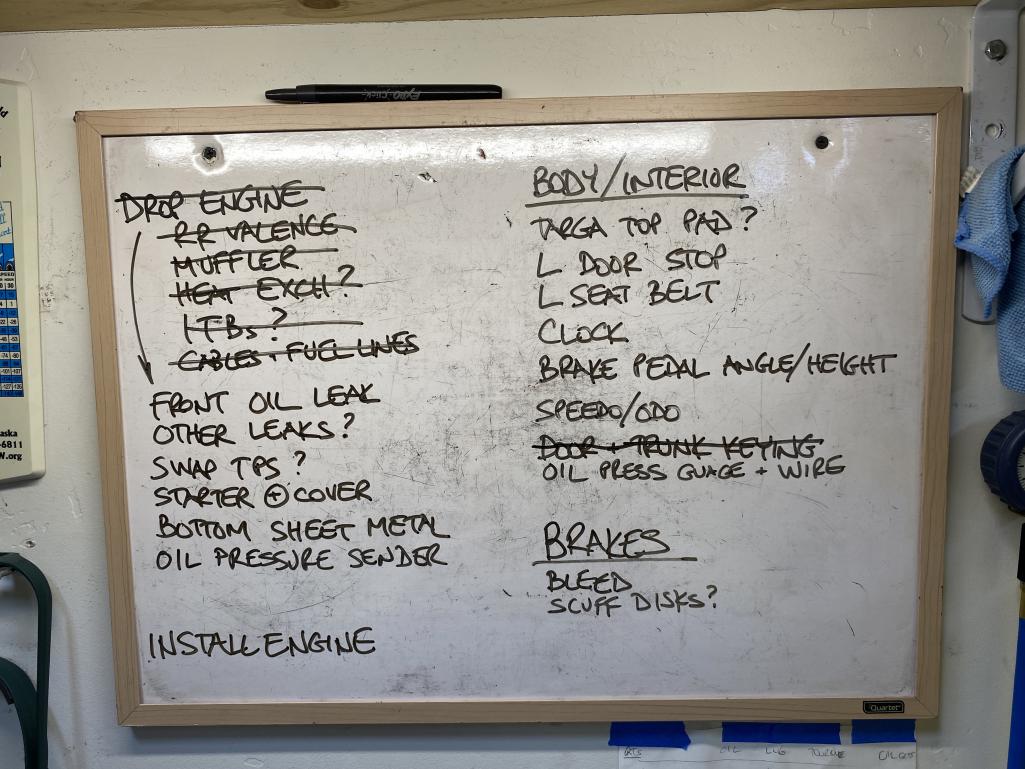 EXPO Click
DROP ENGINE
RR VALENCE
MUFFLER
HEAT EXCH?
ITBs?
CABLES + FUEL LINES
FRONT OIL LEAK
OTHER LEAKS?
SWAP TPS?
STARTER + COVER
BOTTOM SHEET METAL
OIL PRESSURE SENDER
INSTALL ENGINE
BODY/INTERIOR
TARGA TOP PAD?
L DOOR STOP
L SEAT BELT
CLOCK
BRAKE PEDAL ANGLE/HEIGHT
SPEEDO/ODO
DOOR + TRUNK KEYING
OIL PRESS GUAGE + WIRE
BRAKES
BLEED
SCUFF DISKS?
Quartet